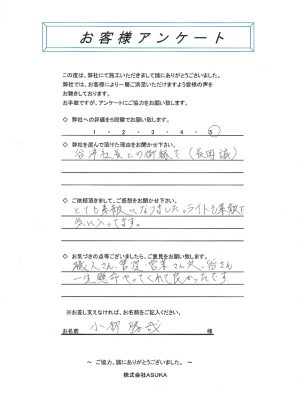 お客様アンケート
この度は、弊社にて施工いただきまして誠にありがとうございました。
弊社では、お客様により一層ご満足いただけますよう皆様の声を
お聴きしております。
お手数ですが、アンケートにご協力をお願い致します。
◇ 弊社への評価を5段階でお願い致します。
1・2・3・4・5
◇ 弊社を選んで頂けた理由をお聞かせ下さい。
社長との御縁で(長田 誠)
◇ ご依頼頂きまして、ご感想をお聞かせ下さい。
とても素敵になりました。ライトも素敵で
気に入ってます。
◇ お気づきの点等ございましたら、ご意見をお願い致します。
職人さん、営業さん 皆さん
一生懸命やってくれて良かったです
※お差し支えなければ、お名前をご記入ください。
お名前 小 勝 様
～ ご協力、誠にありがとうございました。 ～
株式会社ASUKA